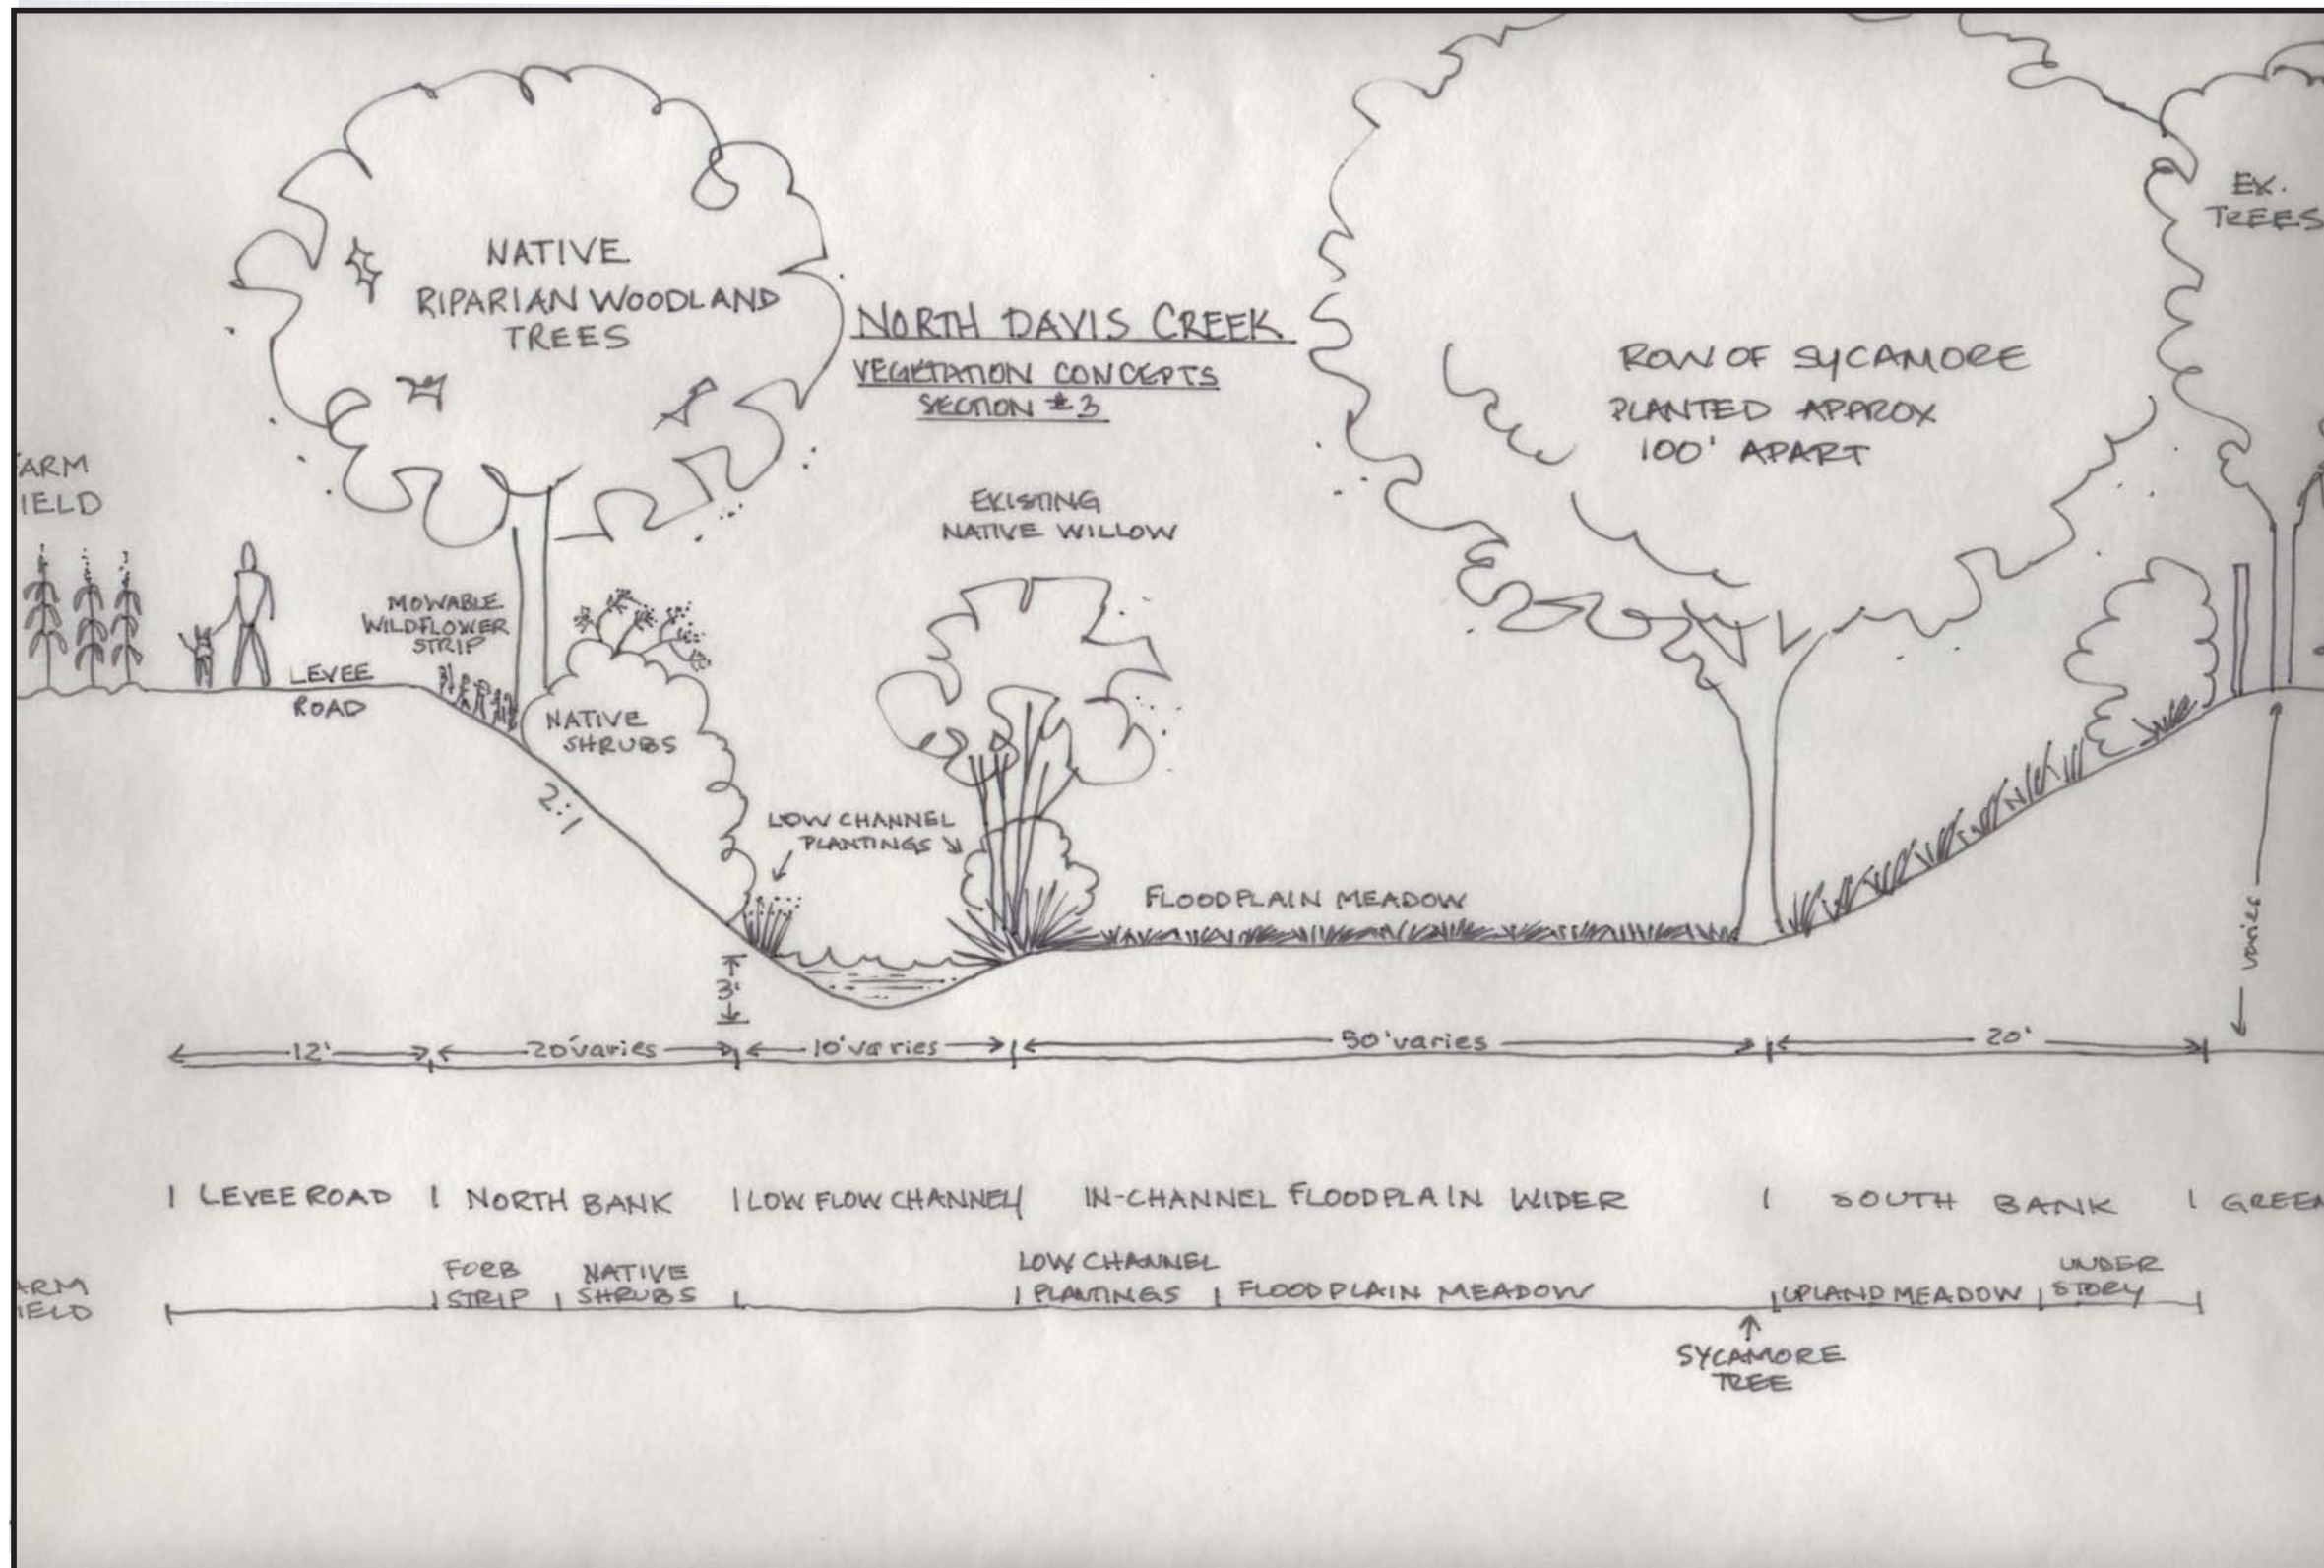 NATIVE
RIPARIAN WOODLAND
TREES
NORTH DAVIS CREEK
VEGETATION CONCEPTS
SECTION #3
ROW OF SYCAMORE
PLANTED APPROX
100' APART
EX.
TREES
ARM
IELD
EXISTING
NATIVE WILLOW
MOWABLE
WILDFLOWER
STRIP
LEVEE
ROAD
NATIVE
SHRUBS
2:1
LOW CHANNEL
PLANTINGS
FLOODPLAIN MEADOW
3'
varies
12' 20' varies 10' varies 50' varies 20'
LEVEE ROAD NORTH BANK LOW FLOW CHANNEL IN-CHANNEL FLOODPLAIN WIDER SOUTH BANK GREEN
ARM
IELD
FORB
STRIP
NATIVE
SHRUBS
LOW CHANNEL
PLANTINGS
FLOODPLAIN MEADOW
UPLAND MEADOW
UNDER
STORY
SYCAMORE
TREE